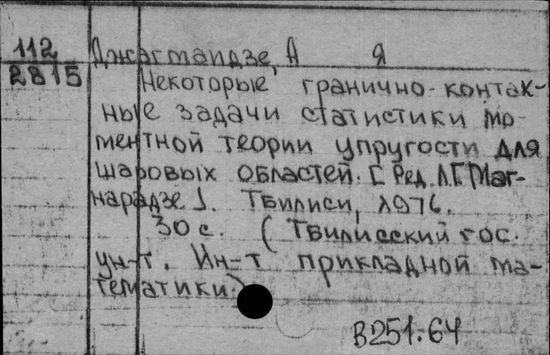 112 Джагмаидзе, А Я
2815 Некоторые гранично-контак-
ные задачи статистики мо-
ментной теории упругости для
шаровых областей. [Ред. Л.Г. Маг-
нарадзе]. Тбилиси, 1976.
30 с. (Тбилисский гос.
ун-т. Ин-т прикладной ма-
тематики.
В251.64